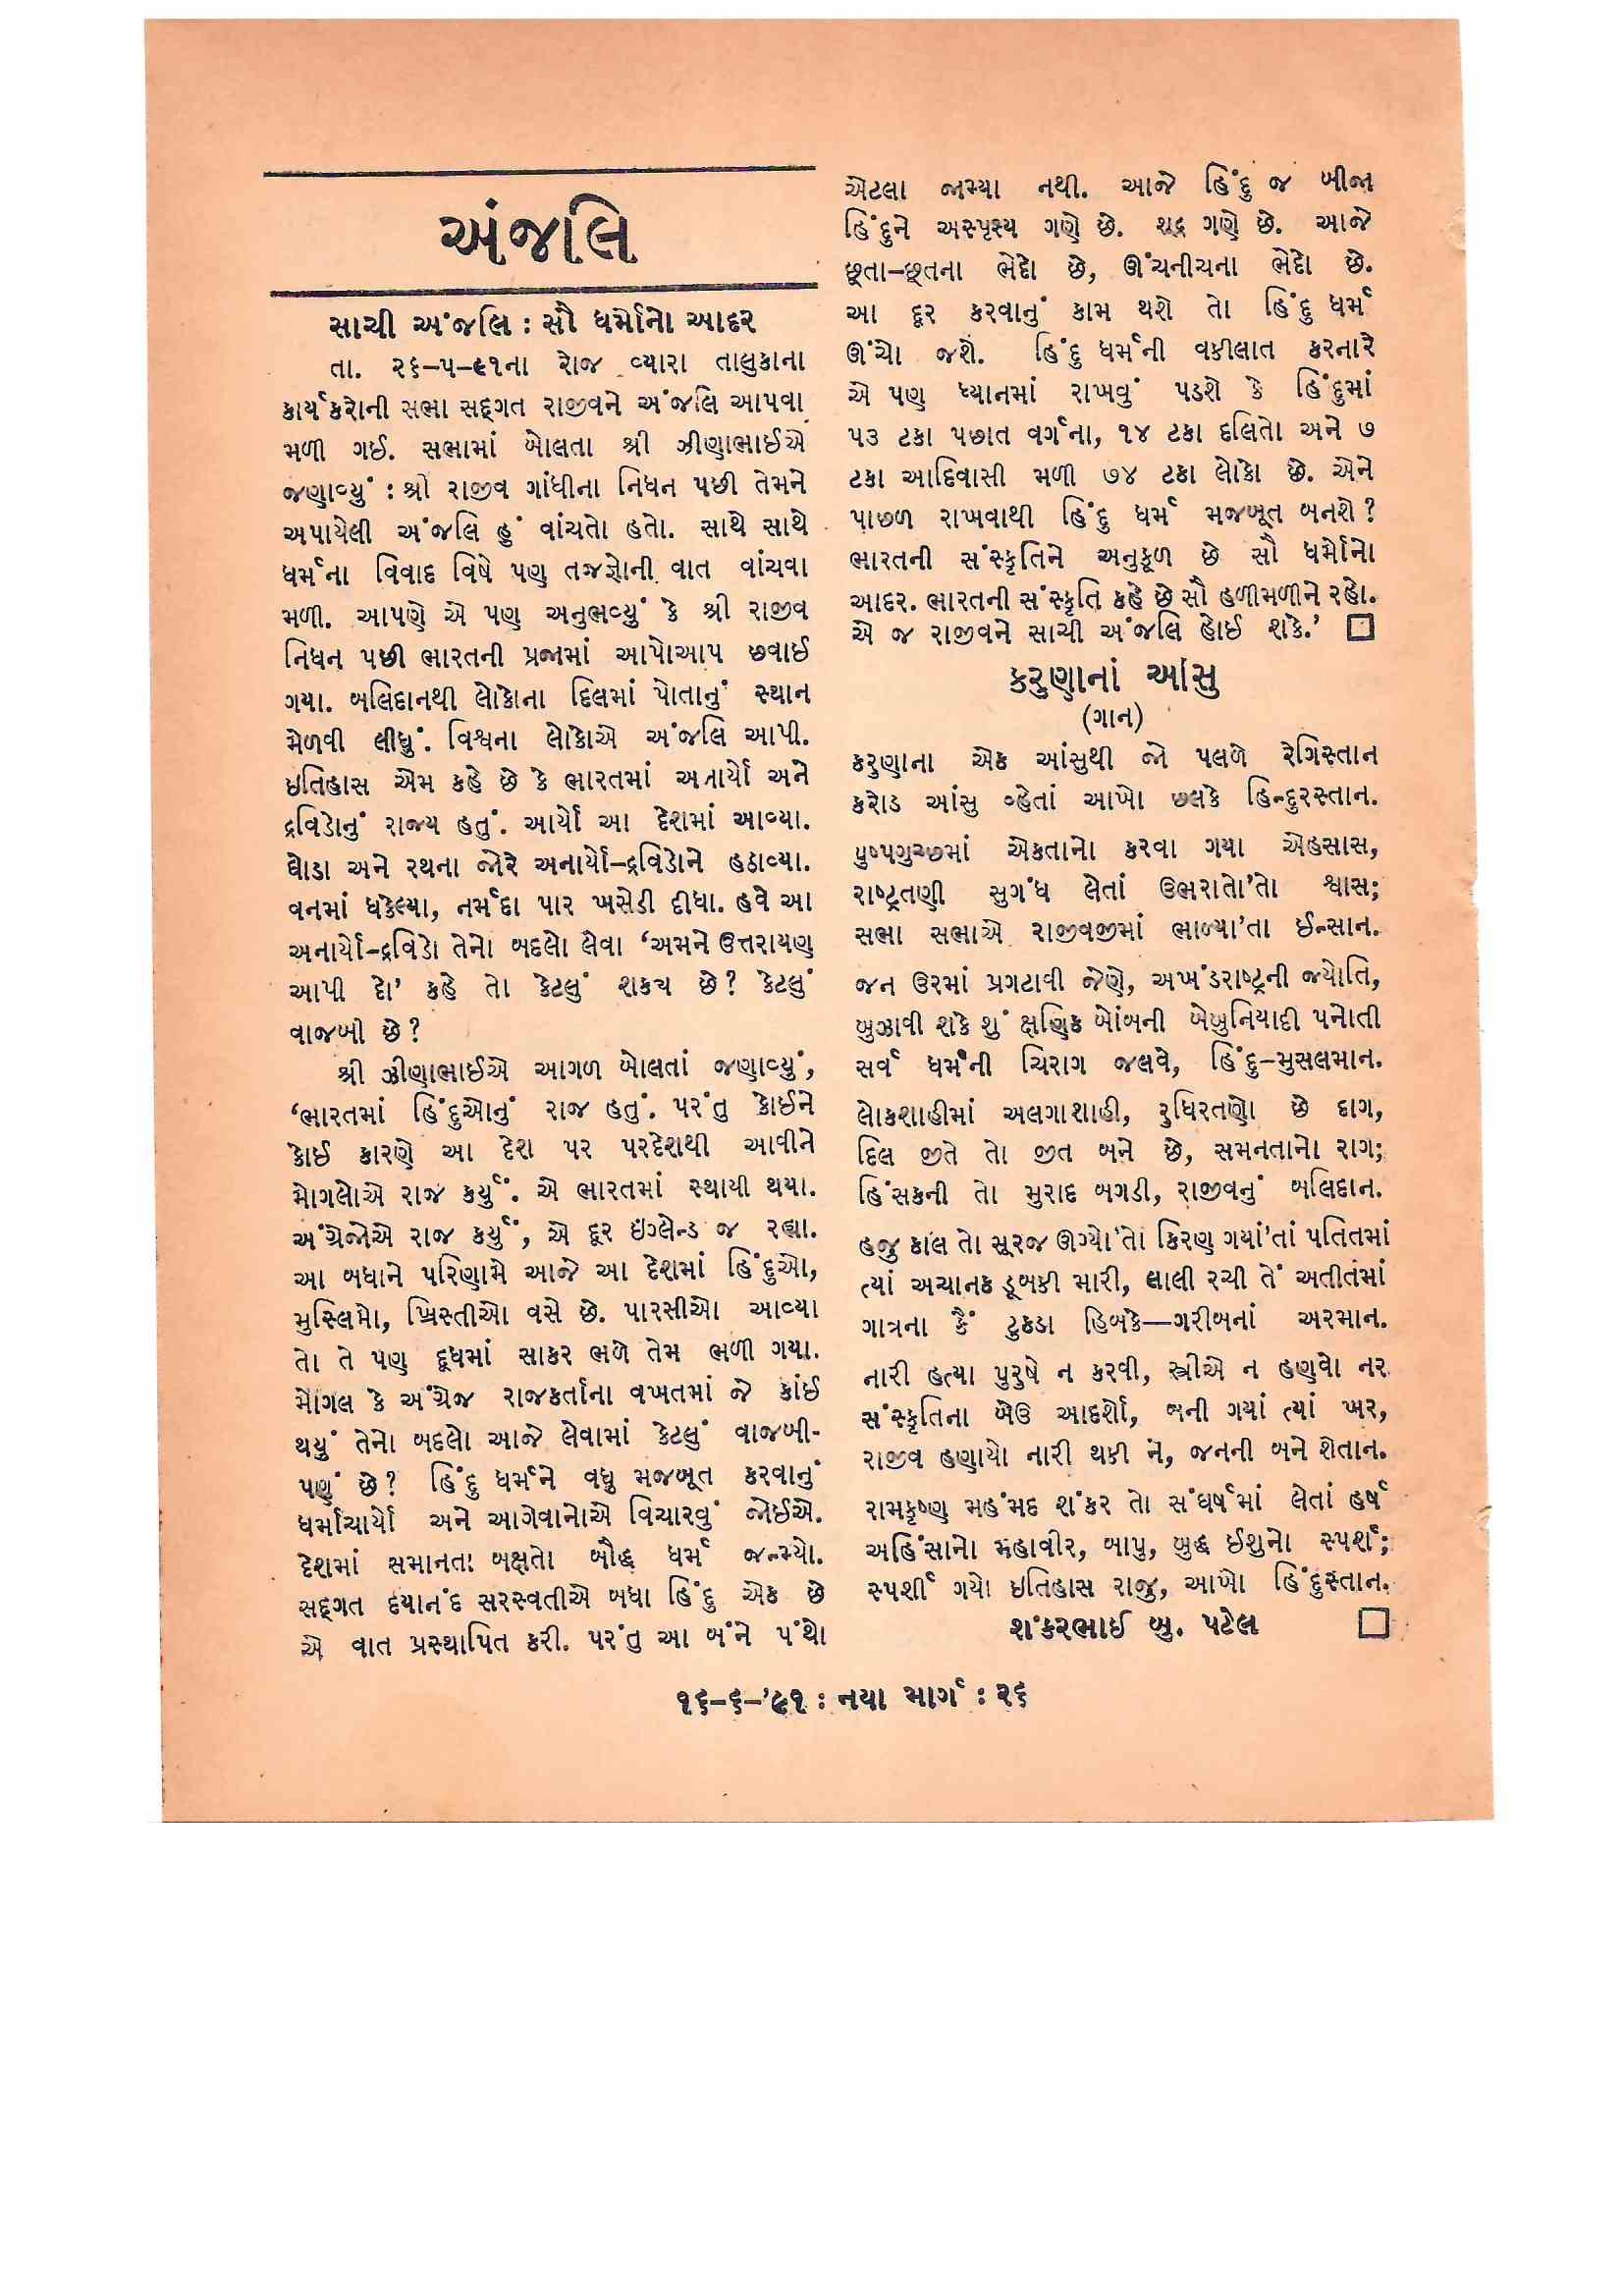 અંજલિ
સાચી અંજલિ : સૌ ધર્મોનો આદર
તા. ૨૬-૫-૯૧ના રોજ વ્યારા તાલુકાના
કાર્યકરોની સભા સદ્દગત રાજીવને અંજલિ આપવા
મળી ગઈ. સભામાં બોલતા શ્રી ઝીણાભાઈએ
જણાવ્યું : શ્રી રાજીવ ગાંધીના નિધન પછી તેમને
અપાયેલી અંજલિ હું વાંચતો હતો. સાથે સાથે
ધર્મના વિવાદ વિષે પણ તજજ્ઞોની વાત વાંચવા
મળી. આપણે એ પણ અનુભવ્યું કે શ્રી રાજીવ
નિધન પછી ભારતની પ્રજામાં આપોઆપ છવાઈ
ગયા. બલિદાનથી લોકોના દિલમાં પોતાનું સ્થાન
મેળવી લીધું. વિશ્વના લોકોએ અંજલિ આપી.
ઇતિહાસ એમ કહે છે કે ભારતમાં અનાર્યો અને
દ્રવિડોનું રાજ્ય હતું. આર્યો આ દેશમાં આવ્યા.
ઘોડા અને રથના જોરે અનાર્યો-દ્રવિડોને હઠાવ્યા.
વનમાં ધકેલ્યા, નર્મદા પાર ખસેડી દીધા. હવે આ
અનાર્યો-દ્રવિડો તેનો બદલો લેવા ‘અમને ઉત્તરાયણ
આપી દો’ કહે તો કેટલું શકય છે? કેટલું
વાજબી છે?
શ્રી ઝીણાભાઈએ આગળ બોલતાં જણાવ્યું,
‘ભારતમાં હિંદુઓનું રાજ હતું. પરંતુ કોઈને
કોઈ કારણે આ દેશ પર પરદેશથી આવીને
મોગલોએ રાજ કર્યું. એ ભારતમાં સ્થાયી થયા.
અંગ્રેજોએ રાજ કર્યું, એ દૂર ઇંગ્લેન્ડ જ રહ્યા.
આ બધાને પરિણામે આજે આ દેશમાં હિંદુઓ,
મુસ્લિમો, ખ્રિસ્તીઓ વસે છે. પારસીઓ આવ્યા
તો તે પણ દૂધમાં સાકર ભળે તેમ ભળી ગયા.
મોગલ કે અંગ્રેજ રાજકર્તાના વખતમાં જે કાંઈ
થયું તેનો બદલો આજે લેવામાં કેટલું વાજબી-
પણું છે? હિંદુ ધર્મને વધુ મજબૂત કરવાનું
ધર્માચાર્યો અને આગેવાનોએ વિચારવું જોઈએ.
દેશમાં સમાનતા બક્ષતો બૌદ્ધ ધર્મ જન્મ્યો.
સદ્દગત દયાનંદ સરસ્વતીએ બધા હિંદુ એક છે
એ વાત પ્રસ્થાપિત કરી. પરંતુ આ બંને પંથો
એટલા જામ્યા નથી. આજે હિંદુ જ બીજા
હિંદુને અસ્પૃસ્ય ગણે છે. શૂદ્ર ગણે છે. આજે
છૂતા-છૂતના ભેદો છે, ઊંચનીચના ભેદો છે.
આ દૂર કરવાનું કામ થશે તો હિંદુ ધર્મ
ઊંચો જશે. હિંદુ ધર્મની વકીલાત કરનારે
એ પણ ધ્યાનમાં રાખવું પડશે કે હિંદુમાં
૫૩ ટકા પછાત વર્ગના, ૧૪ ટકા દલિતો અને ૭
ટકા આદિવાસી મળી ૭૪ ટકા લોકો છે. એને
પાછળ રાખવાથી હિંદુ ધર્મ મજબૂત બનશે?
ભારતની સંસ્કૃતિને અનુકૂળ છે સૌ ધર્મોનો
આદર. ભારતની સંસ્કૃતિ કહે છે સૌ હળીમળીને રહો.
એ જ રાજીવને સાચી અંજલિ હોઈ શકે.’
કરુણાનાં આંસુ
(ગાન)
કરુણાના એક આંસુથી જો પલળે રેગિસ્તાન
કરોડ આંસુ વ્હેતાં આખો છલકે હિન્દુરસ્તાન.
પુષ્પગુચ્છમાં એકતાનો કરવા ગયા એહસાસ,
રાષ્ટ્રતણી સુગંધ લેતાં ઉભરાતો’તો શ્વાસ;
સભા સભાએ રાજીવજીમાં ભાળ્યા’તા ઈન્સાન.
જન ઉરમાં પ્રગટાવી જેણે, અખંડરાષ્ટ્રની જ્યોતિ,
બુઝાવી શકે શું ક્ષણિક બોંબની બેબુનિયાદી પનોતી
સર્વ ધર્મની ચિરાગ જલવે, હિંદુ-મુસલમાન.
લોકશાહીમાં અલગાશાહી, રુધિરતણો છે દાગ,
દિલ જીતે તો જીત બને છે, સમનતાનો રાગ;
હિંસકની તો મુરાદ બગડી, રાજીવનું બલિદાન.
હજુ કાલ તો સૂરજ ઊગ્યો’તો કિરણ ગયાં’તાં પતિતમાં
ત્યાં અચાનક ડૂબકી મારી, લાલી રચી તેં અતીતમાં
ગાત્રના કૈં ટુકડા હિબકે—ગરીબનાં અરમાન.
નારી હત્યા પુરુષે ન કરવી, સ્ત્રીએ ન હણવો નર
સંસ્કૃતિના બેઉ આદર્શો, બની ગયાં ત્યાં ખર,
રાજીવ હણાયો નારી થકી ને, જનની બને શેતાન.
રામકૃષ્ણ મહંમદ શંકર તો સંઘર્ષમાં લેતાં હર્ષ
અહિંસાનો મહાવીર, બાપુ, બુદ્ધ ઈશુનો સ્પર્શ;
સ્પર્શી ગયો ઇતિહાસ રાજુ, આખો હિંદુસ્તાન.
શંકરભાઈ બુ. પટેલ
૧૬-૬-’૯૧ : નયા માર્ગ : ૨૬